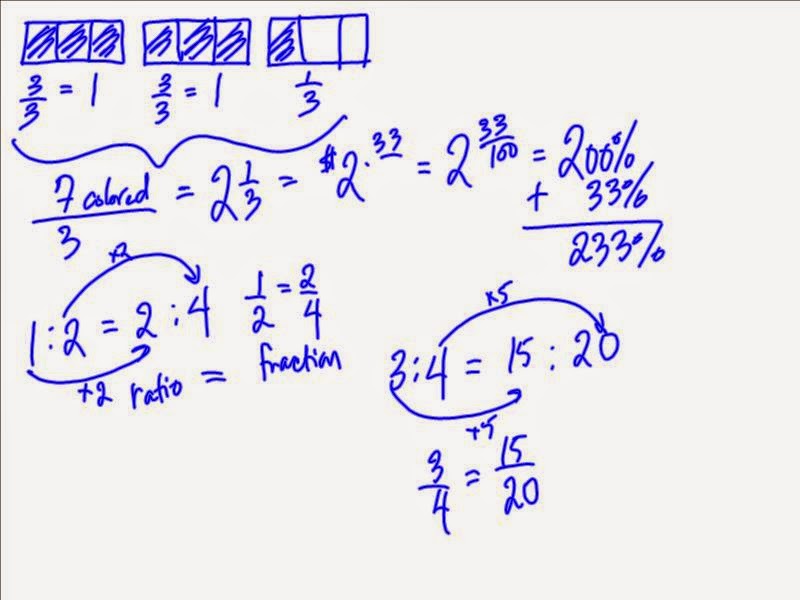 3/3 = 1 3/3 = 1 1/3
7 colored/3 = 2 1/3 = $2.33 = 2 33/100 = 200%
+ 33%
233%
×2
1:2 = 2:4 1/2 = 2/4
×2 ratio = fraction
×5
3:4 = 15:20
×5
3/4 = 15/20